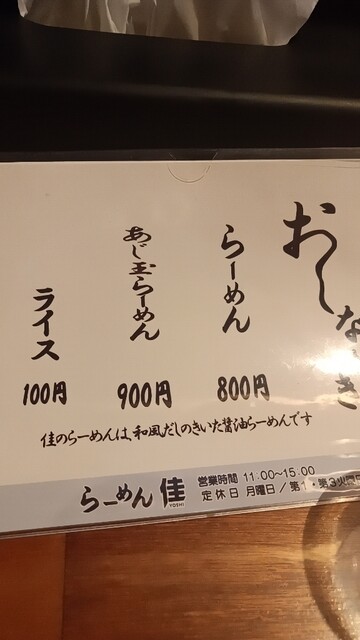 おしながき
らーめん
800円
あじ玉らーめん
900円
ライス
100円
佳のらーめんは、和風だしのきいた醤油らーめんです
らーめん 佳
YOSHI
営業時間 11:00～15:00
定休日 月曜日／第1・第3火曜日